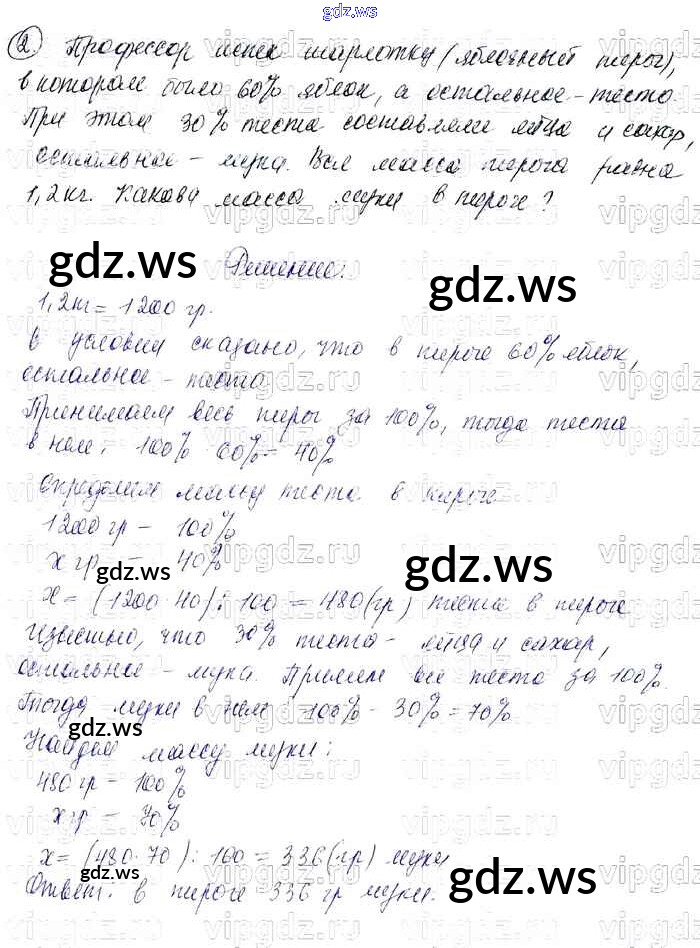 gdz.ws
2. Профессор испек шарлотку (яблочный пирог),
в котором было 60% яблок, а остальное - тесто.
При этом 30% теста составляли яйца и сахар,
остальное - мука. Вся масса пирога равна
1,2 кг. Какова масса муки в пироге?
Решение:
1,2 кг = 1200 гр.
В условии сказано, что в пироге 60% яблок,
остальное - тесто
Принимаем весь пирог за 100%, тогда теста
в нем: 100% - 60% = 40%
Определим массу теста в пироге
1200 гр - 100%
x гр - 40%
x = (1200·40) : 100 = 480 (гр) теста в пироге
Известно, что 30% теста - яйца и сахар,
остальное - мука. Примем все тесто за 100%.
Тогда муки в нем: 100% - 30% = 70%
Найдем массу муки:
480 гр - 100%
x гр - 70%
x = (480·70) : 100 = 336 (гр) муки
Ответ: в пироге 336 гр муки.
gdz.ws
gdz.ws
gdz.ws
gdz.ws
gdz.ws
gdz.ws
gdz.ws
gdz.ws
vipgdz.ru